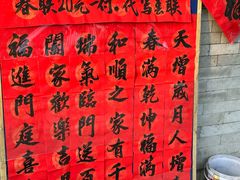 春联20元一付.代写喜联
天增歲月人增
春滿乾坤福滿
和順之家有千
瑞氣臨門送百
闔家歡樂吉
福進門庭喜